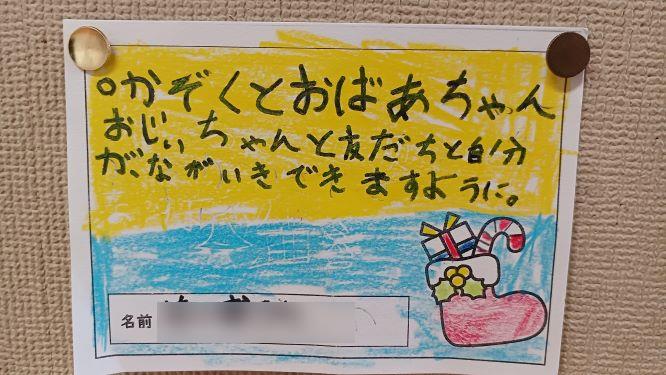 ○かぞくとおばあちゃん
おじいちゃんと友だちと自分
が、ながいきできますように。
名前